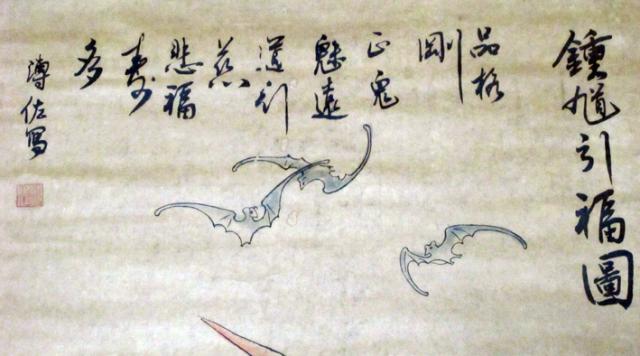 鍾馗引福圖
品格
剛
正鬼
魅遠
道行
慈
悲福
壽
多
溥佐寫